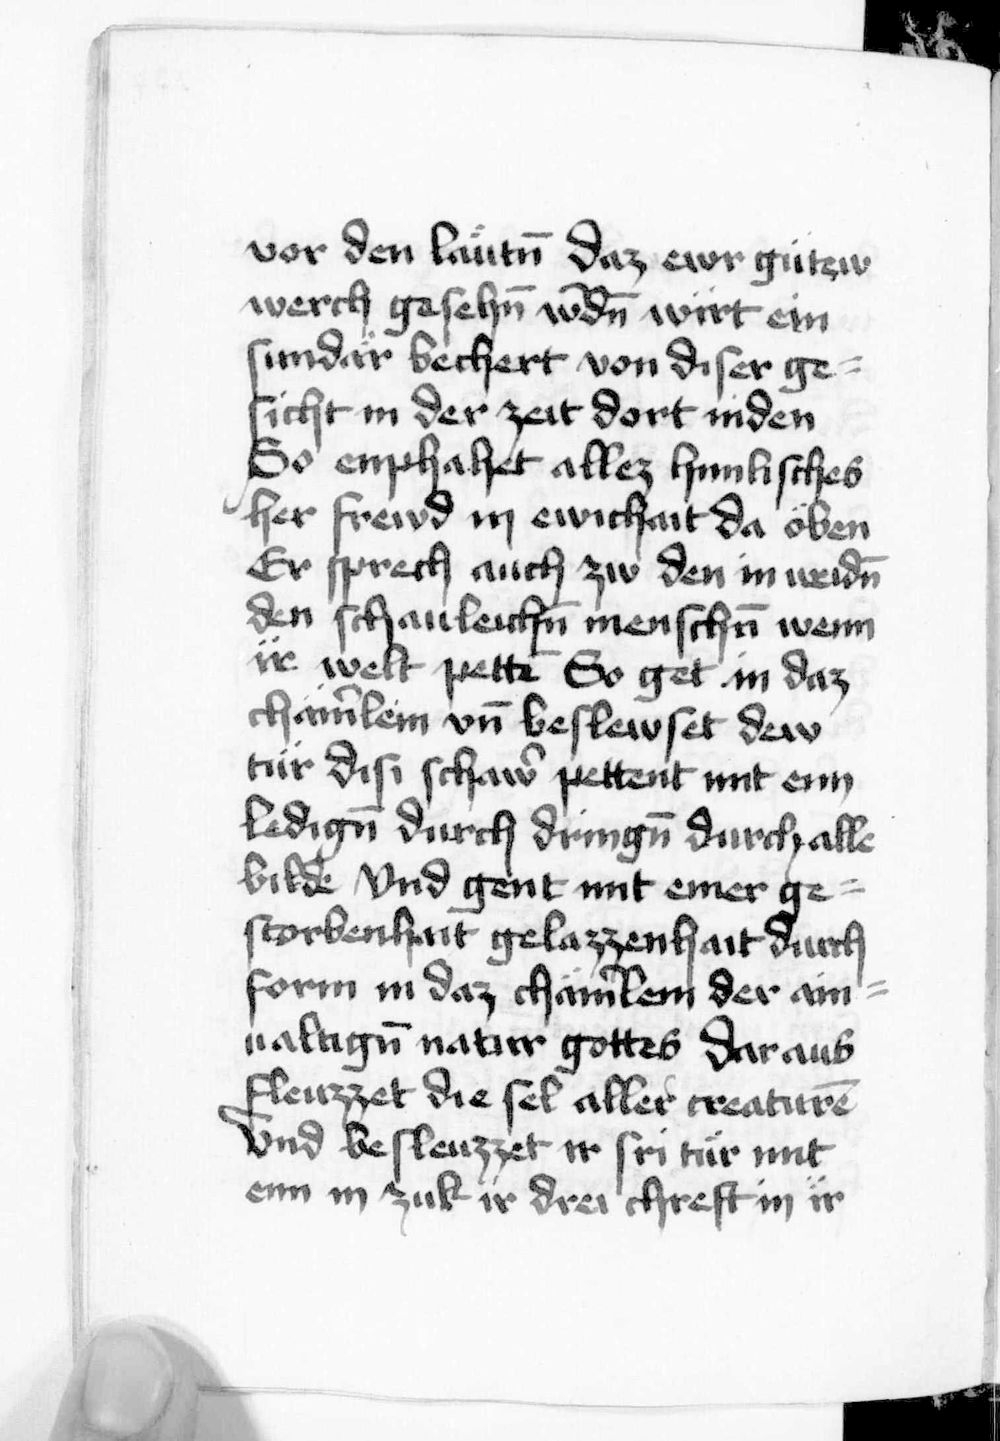 vor den läutn̄ daz ewr gütew
werch gesehn̄ w̄dn̄ wirt ein
sundär bechert von diser ge=
sicht in der zeit dort niden
So enphahet allez himlisches
her frewd in ewichait da öben
Er sprech auch zw den in wīdn̄
den schauleichn̄ menschn̄ wenn
ir welt pettē So get in daz
chäm̄lein vn̄ beslewset dew
tür disi schaw̄ pettent mit einn
ledign̄ durch dringn̄ durch alle
bilde Vnd gent mit einer ge=
storbenhait gelazzenhait durch
form in daz chäm̄lein der ain=
ualtign̄ natur gottes Dar aus
fleuzzet die sel aller creaturē
Vnd besleuzzet ir tür mit
einn in zuk ir drei chreft in ir